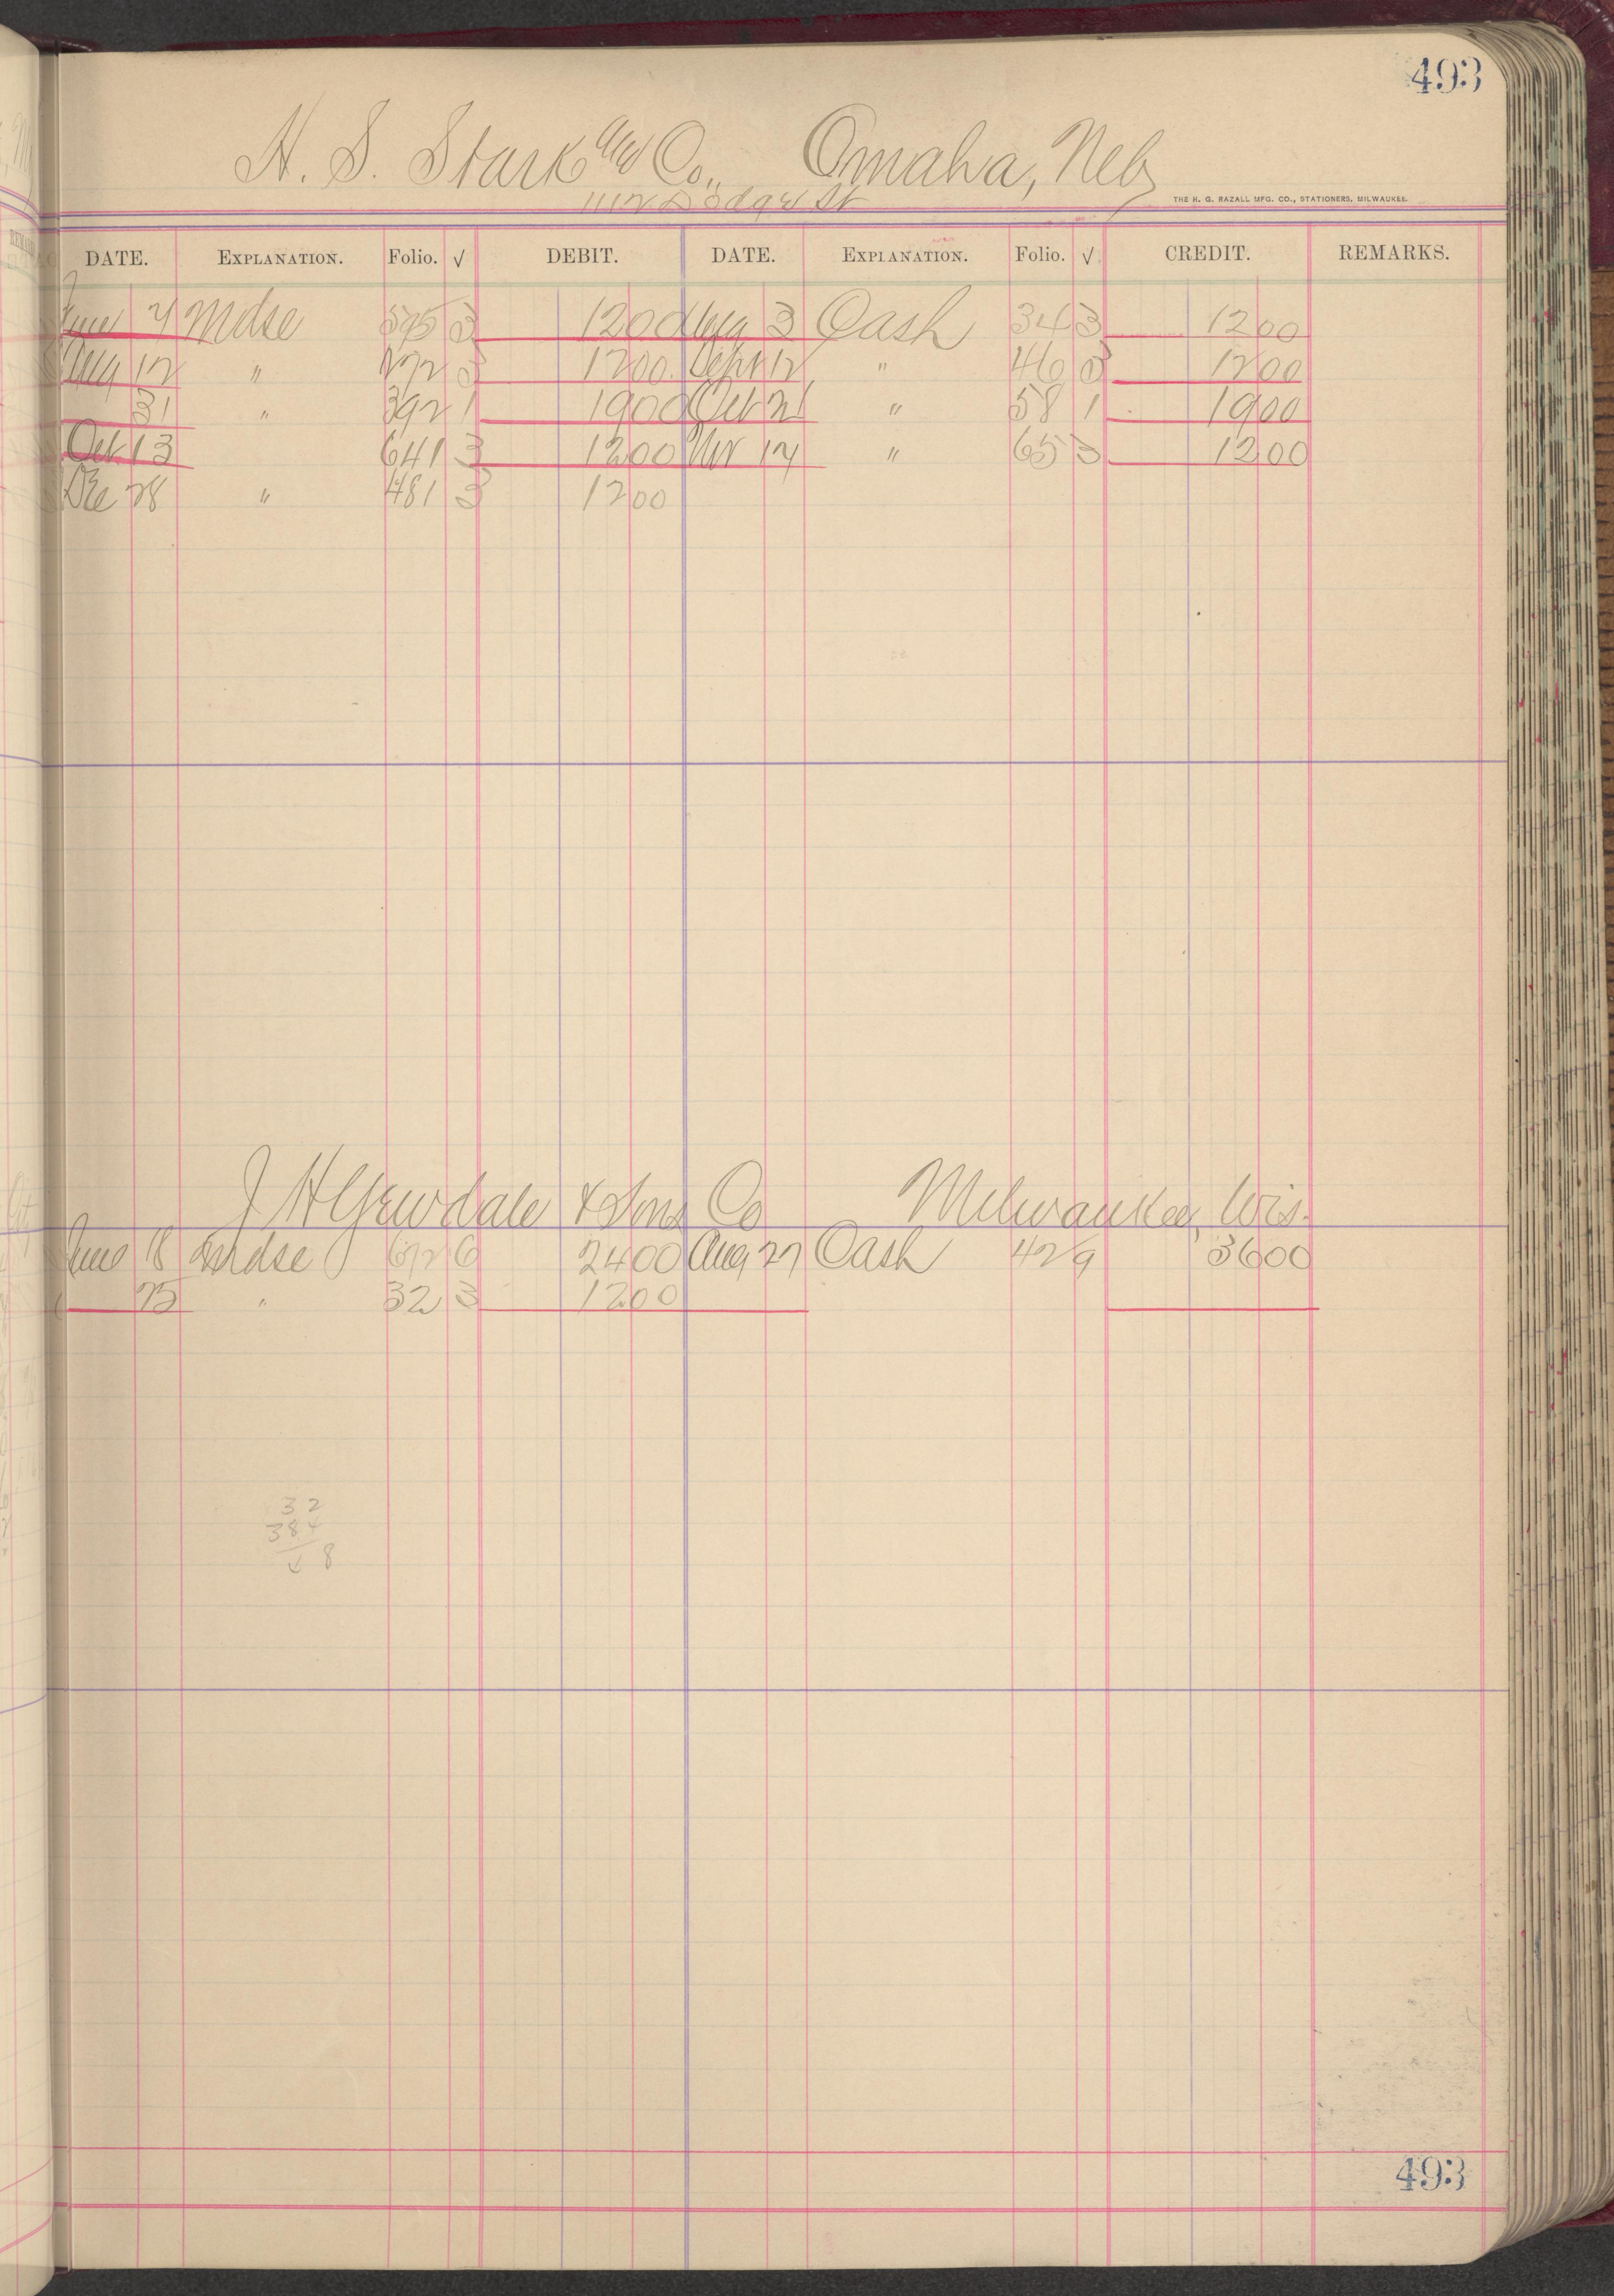 493
H. S. Stark Co., Omaha, Neb
1112 Dodge St
THE H. G. RAZALL MFG. CO., STATIONERS, MILWAUKEE.
DATE. EXPLANATION. Folio. √ DEBIT. DATE. EXPLANATION. Folio. √ CREDIT. REMARKS.
June 4 Mdse 595 3 1200 Aug 3 Cash 34 3 1200
Aug 12 " 272 3 1200 Sept 12 " 46 3 1200
31 " 392 1 1900 Oct 21 " 58 1 1900
Oct 13 " 641 3 1200 Nov 14 " 65 3 1200
Dec 28 " 481 3 1200
J H Yewdale & Sons Co Milwaukee, Wis.
June 18 Mdse 672 6 2400 Aug 27 Cash 42 9 3600
25 " 32 3 1200
32
384
8
493